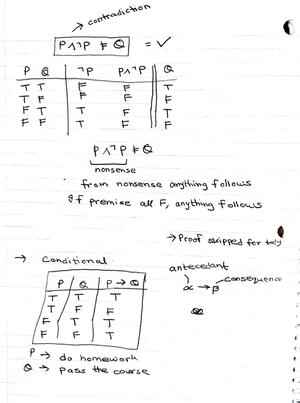 → contradiction
P∧¬P ⊭ Q = ✓
P Q ¬P P∧¬P Q
T T F F T
T F F F F
F T T F T
F F T F F
P∧¬P ⊨ Q
nonsense
from nonsense anything follows
If premise all F, anything follows
→ Proof skipped for
→ Conditional
P Q P → Q
T T T
T F F
F T T
F F T
antecedent
consequence
α → β
P → do homework
Q → pass the course